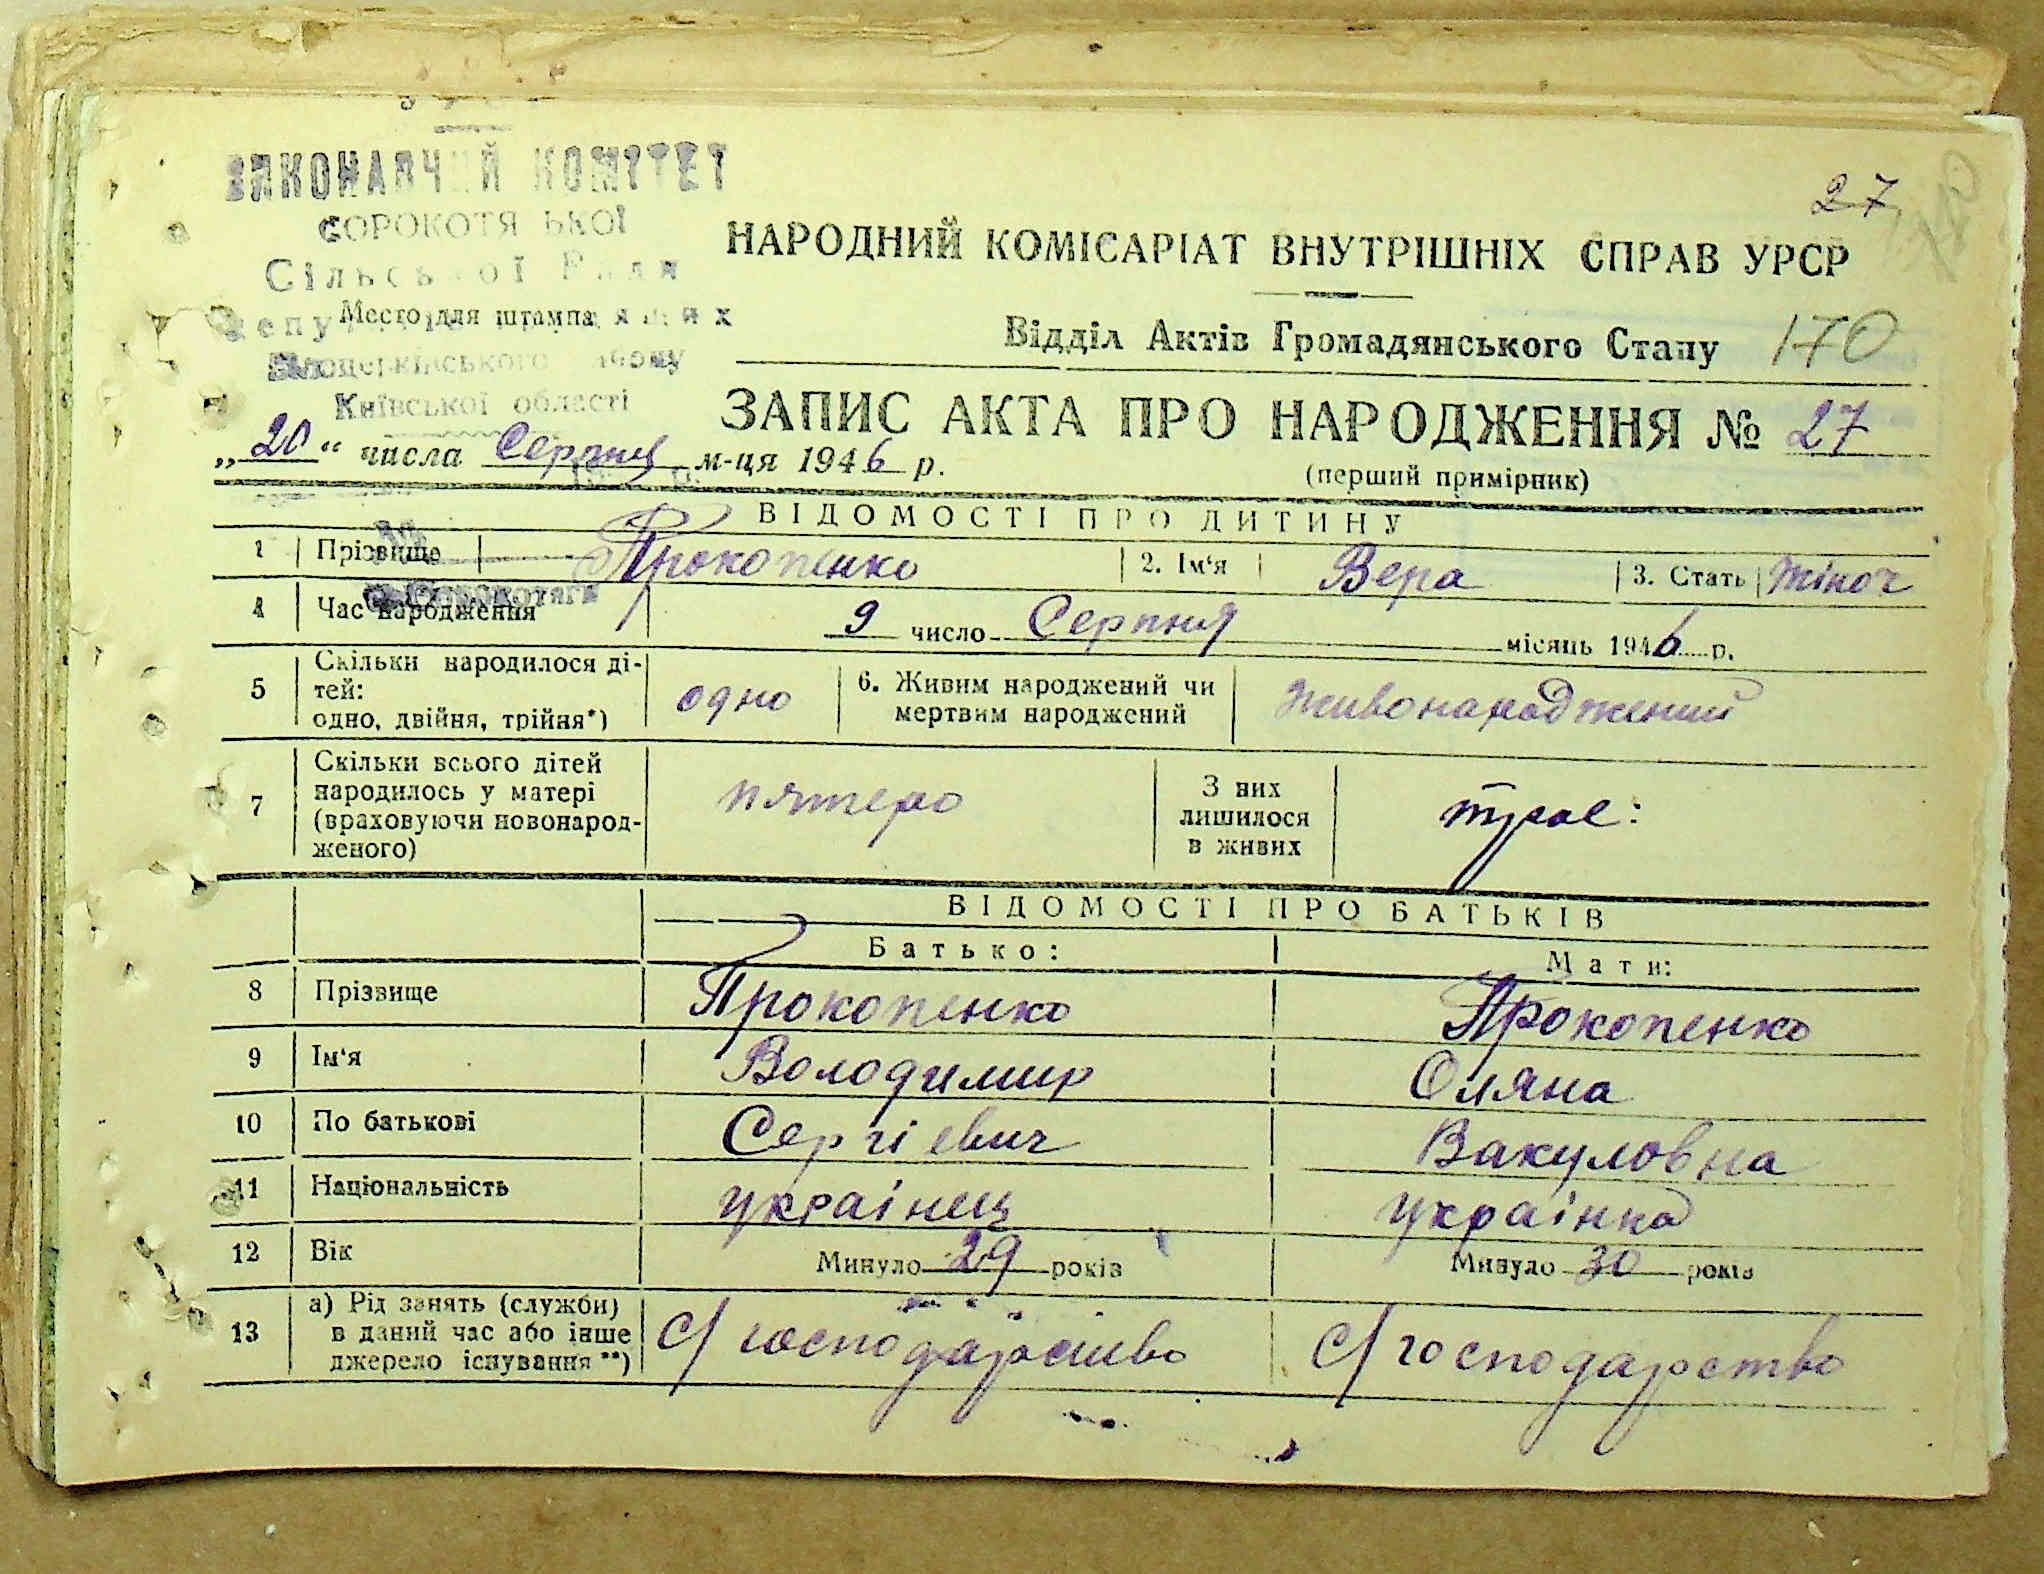 27
ВИКОНАВЧИЙ КОМІТЕТ
СОРОКОТЯ ЬКОЇ
Сільської Ради
Место для штампа
Київської області
НАРОДНИЙ КОМІСАРІАТ ВНУТРІШНІХ СПРАВ УРСР
Відділ Актів Громадянського Стану 170
ЗАПИС АКТА ПРО НАРОДЖЕННЯ № 27
„20“ числа Серпня м-ця 1946 р.
(перший примірник)
ВІДОМОСТІ ПРО ДИТИНУ
1 Прізвище Прокопенко 2. Ім‘я Вера 3. Стать жіноч
с. Сорокотяги
4 Час народження 9 число Серпня місяць 1946 р.
5 Скільки народилося ді-
тей:
одно, двійня, трійня*) одно 6. Живим народжений чи
мертвим народжений живонароджений
7 Скільки всього дітей
народилось у матері
(враховуючи новонарод-
женого) пятеро З них
лишилося
в живих троє:
ВІДОМОСТІ ПРО БАТЬКІВ
Батько: Мати:
8 Прізвище Прокопенко Прокопенко
9 Ім‘я Володимир Оляна
10 По батькові Сергієвич Вакуловна
11 Національність українец українка
12 Вік Минуло 29 років Минуло 30 років
13 а) Рід занять (служби)
в даний час або інше
джерело існування **) С/господарство С/господарство